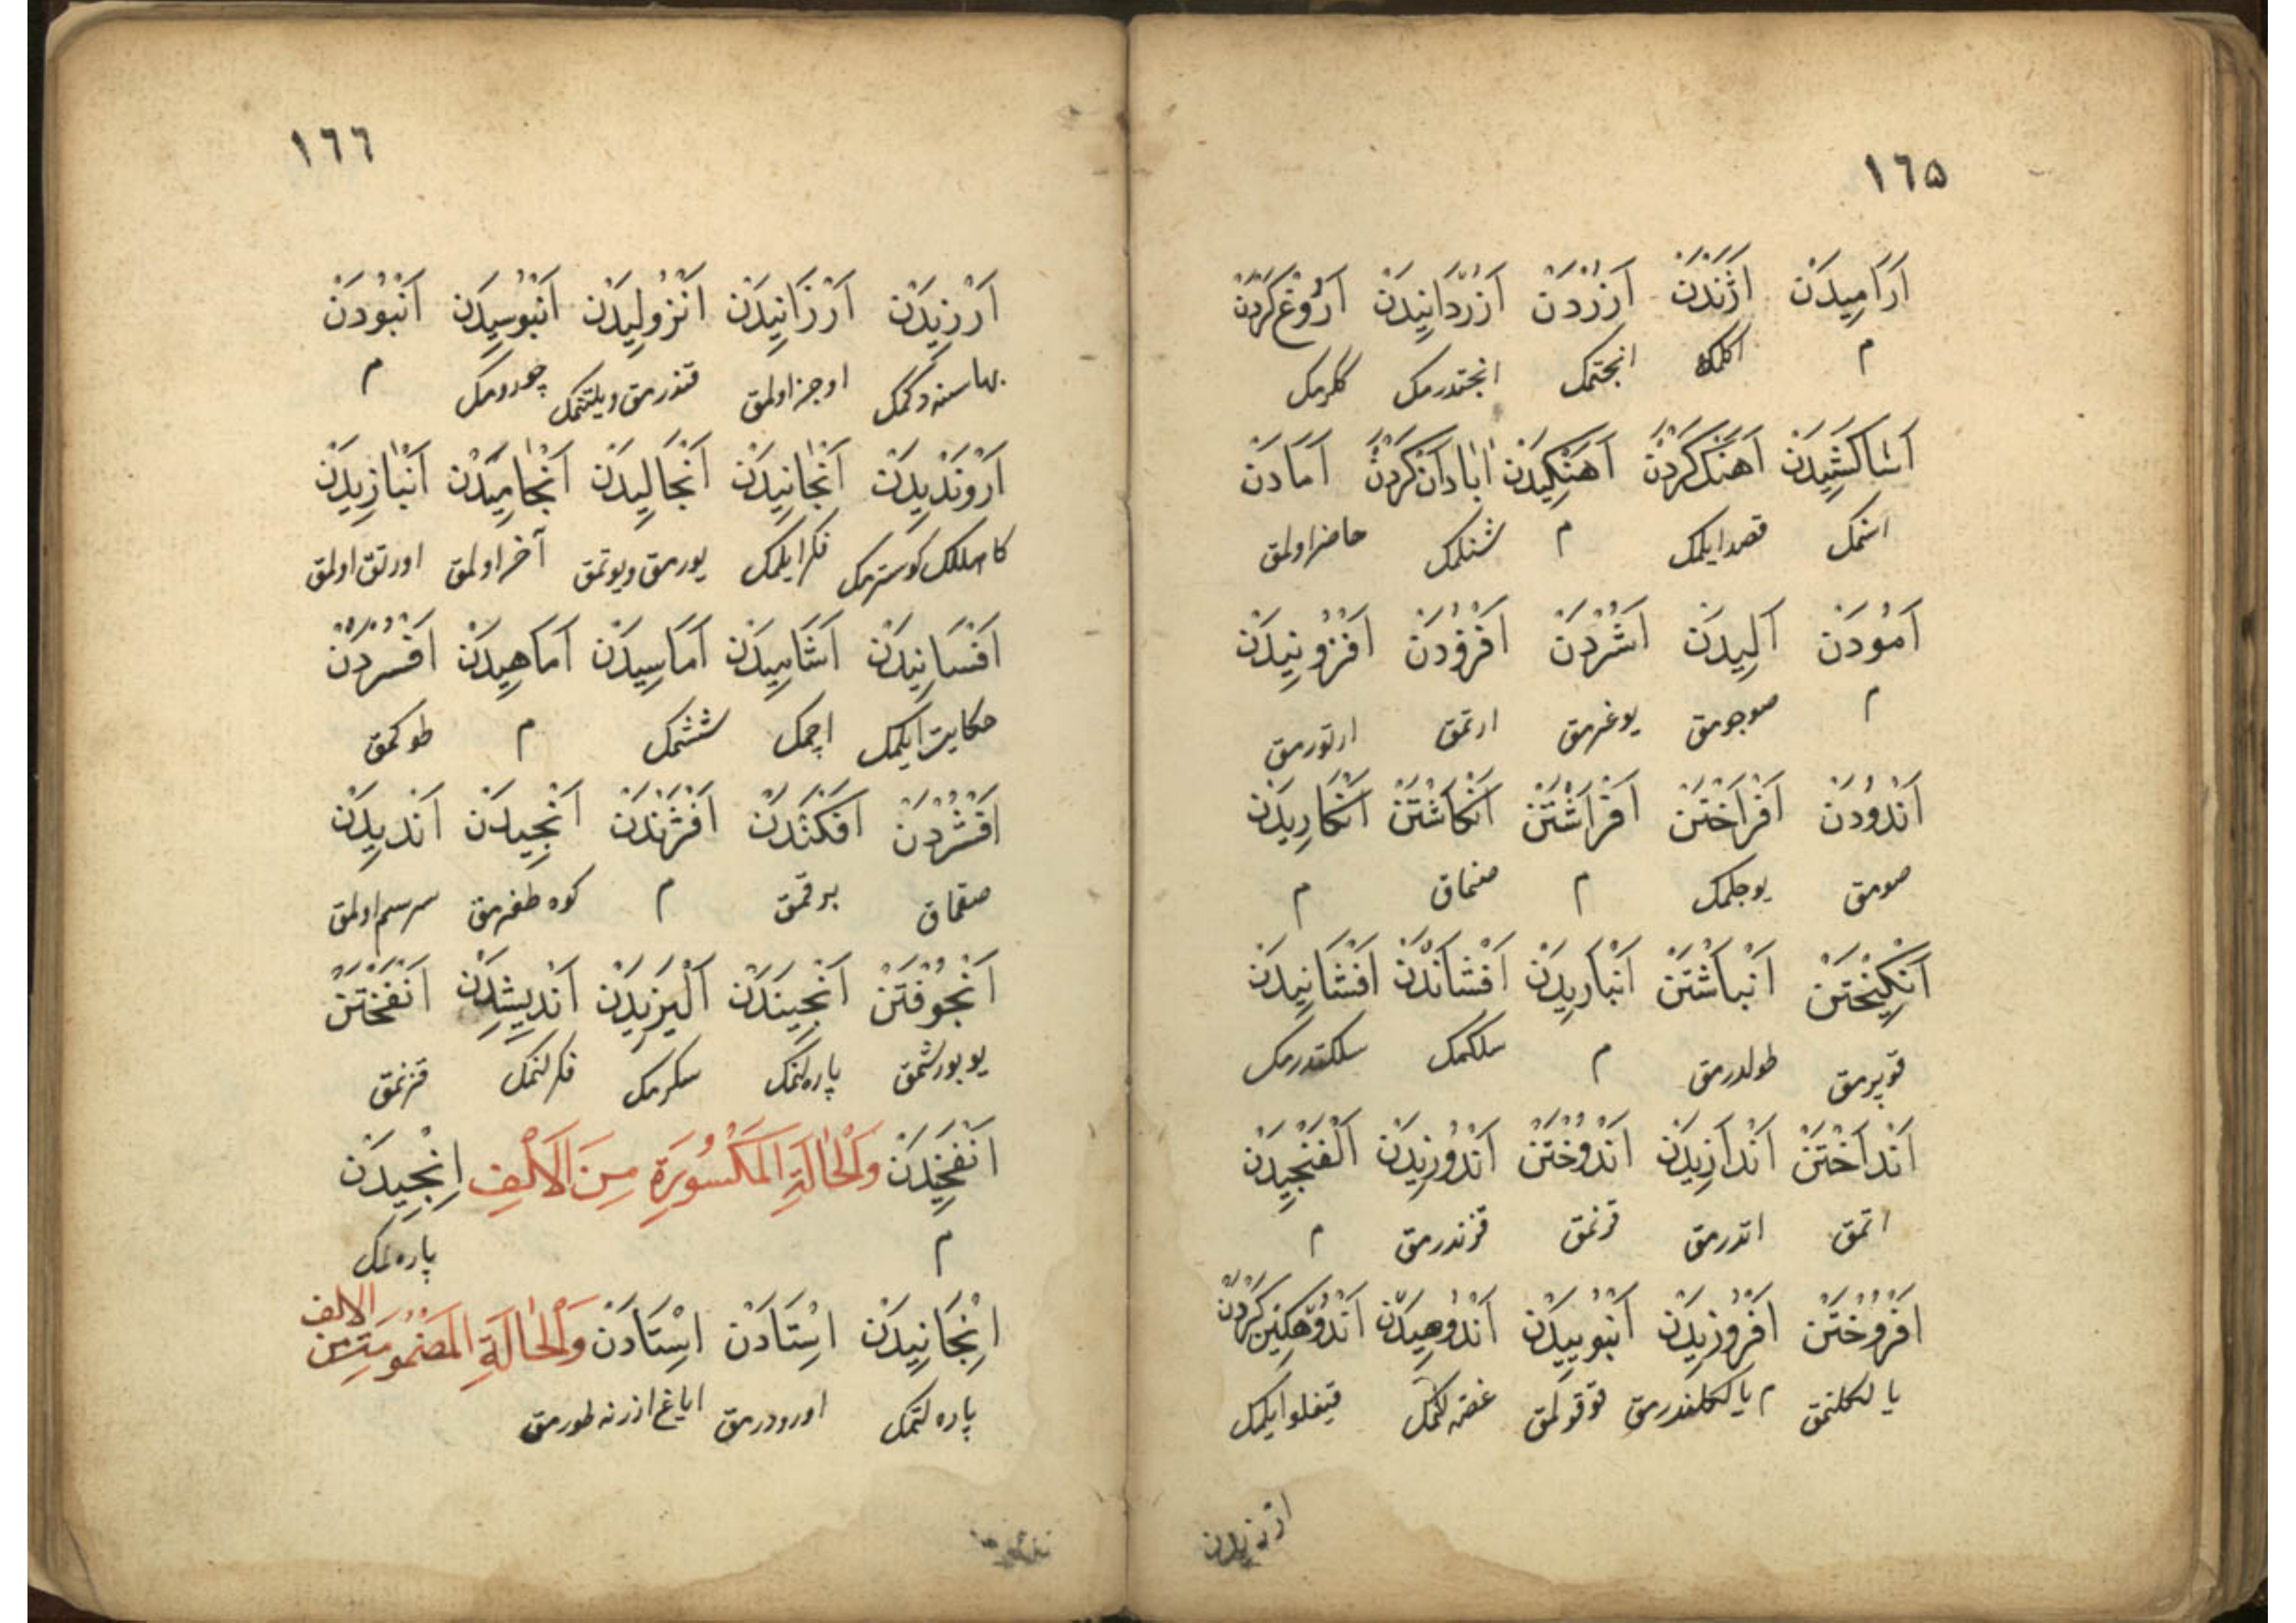 ١٦٥
اَرَامِيدَنْ اَژَنْدَنْ اَزُرْدَنْ اَزُرْدَانِيدَنْ اَرُوغْ كَرْدَنْ
م اكلمك انجتمك انجتدرمك ككرمك
اَشَاكَشِيدَنْ اَهَنْك كَرْدَنْ اَهَنْكِيدَنْ اَبَادَانْ كَرْدَنْ اَمَادَنْ
قصد ايلمك م شنلمك حاضر اولمق
اَمُودَنْ اَلِيدَنْ اَشُرْدَنْ اَفْزُودَنْ اَفْزُونِيدَنْ
م صوجومق يوغرمق ارتمق ارتورمق
اَنْدُودَنْ اَفْرَاخْتَنْ اَفْرَاشْتَنْ اَنْكَاشْتَنْ اَنْكَارِيدَنْ
صومق يوجلمك م صنماق م
اَنْكِيخْتَنْ اَنْبَاشْتَنْ اَنْبَارِيدَنْ اَفْشَانْدَنْ اَفْشَانِيدَنْ
قوپرمق طولدرمق م سلكمك سلكتدرمك
اَنْدَاخْتَنْ اَنْدَازِيدَنْ اَنْدُوخْتَنْ اَنْدُوزِيدَنْ اَلْفَنْجِيدَنْ
اتمق اتدرمق قزنمق قزندرمق م
اَفْرُوخْتَنْ اَفْرُوزِيدَنْ اَنْبُويِيدَنْ اَنْدُوهِيدَنْ اَنْدُوهْكِينْ كَرْدَنْ
يالكلنمق م يالكلندرمق قوقولمق غصه لنمك قيغلو ايلمك
ارزيدن
١٦٦
اَرْزِيدَنْ اَرْزَانِيدَنْ اَنْزُولِيدَنْ اَنْبُوسِيدَنْ اَنْبُودَنْ
بهاسنه دكمك اوجز اولمق قندرمق ويلتنمك چورومك م
اَرْوَنْدِيدَنْ اَنْجَانِيدَنْ اَنْجَالِيدَنْ اَنْجَامِيدَنْ اَنْبَازِيدَنْ
كاهللك كوسترمك فكر ايلمك يورمق ويوتمق آخر اولمق اورتق اولمق
اَفْسَانِيدَنْ اَشَامِيدَنْ اَمَاسِيدَنْ اَمَاهِيدَنْ اَفْسُرْدَنْ
حكايت ايلمك اچمك ششمك م طوكمق
اَفْشُرْدَنْ اَفْكَنْدَنْ اَفْژَنْدَنْ اَنْجِيدَنْ اَنْدِيدَنْ
صقماق برقمق م كوه طغرمق سرسم اولمق
اَنْجُوفْتَنْ اَنْجِينَدَنْ اَلِيزِيدَنْ اَنْدِيشِدَنْ اَنْفَخْتَنْ
يوبورشمق پاره لنمك سكرمك فكرلنمك قزنمق
اَنْفَخِيدَنْ وَالْحَالَةِ الْمَكْسُورَةِ مِنَ الْاَلْفِ اِنْجِيدَنْ
م پاره لمك
اِنْجَانِيدَنْ اِسْتَادَنْ اِسْتَادَنْ وَالْحَالَةِ الْمَضْمُومَةِ مِنَ الالف
پاره لتمك اورودرمق اياغ ازرنه طورمق